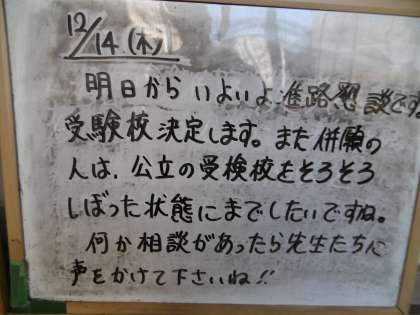 12/14(木)
明日からいよいよ進路懇談です
受験校決定します。また併願の
人は、公立の受検校をそろそろ
しぼった状態にまでしたいですね。
何か相談があったら先生たちに
声をかけて下さいね!!